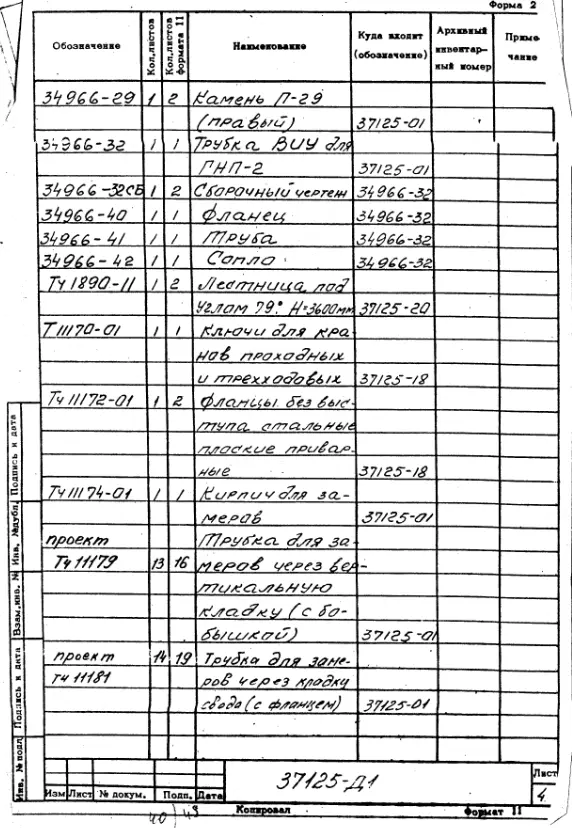 Форма 2
Обозначение Кол.листов Кол.листов формата 11 Наименование Куда входит (обозначение) Архивный инвентарный номер Примечание
34966-29 1 2 Камень П-29
(правый) 37125-01
34966-32 1 1 Трубка ВИУ для
ГНП-2 37125-01
34966-32СБ 1 2 Сборочный чертеж 34966-32
34966-40 1 1 Фланец 34966-32
34966-41 1 1 Труба 34966-32
34966-42 1 1 Сопло 34966-32
ТЧ 1890-11 1 2 Лестница под
углом 79° Н=3600мм 37125-20
Т 11170-01 1 1 Ключи для кра-
нов проходных
и трехходовых 37125-18
ТЧ 11172-01 1 2 Фланцы без выс-
тупа стальные
плоские привар-
ные 37125-18
ТЧ 11174-01 1 1 Кирпич для за-
меров 37125-01
проект Трубка для за
ТЧ 11179 13 16 меров через вер-
тикальную
кладку (с бо-
бышкой) 37125-01
проект 14 19 Трубка для заме-
ТЧ 11181 ров через кладку
свода (с фланцем) 37125-01
Инв. № подл Подпись и дата Взам.инв. № Инв. №дубл. Подпись и дата
37125-Д1
Лист
4
Изм Лист № докум. Подп. Дата
Копировал Формат 11
40 49